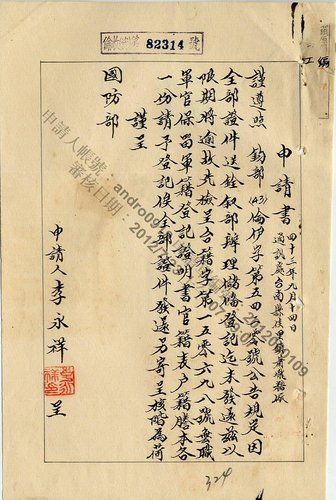 82314 號
申請書
四十三年九月十四日
通訊處台南縣
謹遵照 鈞部(43)倫伊字第五四一零號公告規定因
全部證件送銓叙部辦理儲備登記迄未發還茲以
限期將逾故先檢呈台籍字第一五零六九八號無職
軍官保留軍籍登記證明書官籍表戶籍謄本各
一份請予登記俟全部證件發還另寄呈核階為荷
謹呈
國防部
申請人李永祥 呈
324
申請人帳號:andro009
審核日期:2012/09/09